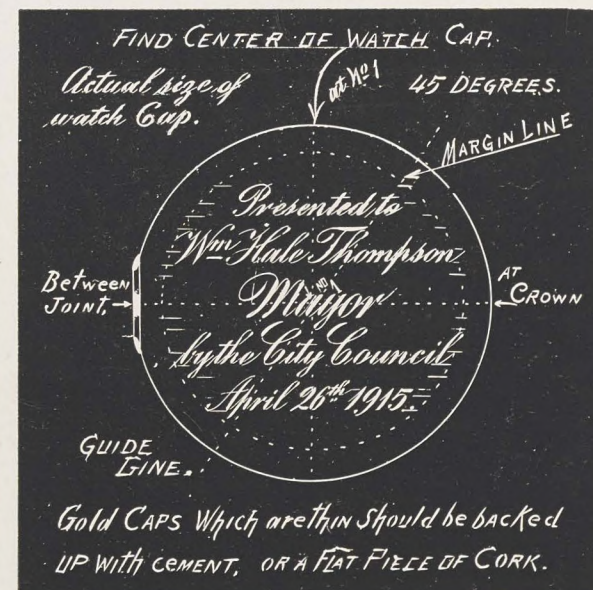 FIND CENTER OF WATCH CAP.
Actual size of
watch Cap.
at No 1
45 DEGREES.
MARGIN LINE
Presented to
Wm Hale Thompson
Mayor
by the City Council
April 26th 1915.
Between
JOINT,
AT
CROWN
GUIDE
LINE.
Gold CAPS Which are thin should be backed
UP with CEMENT, OR A FLAT PIECE OF CORK.